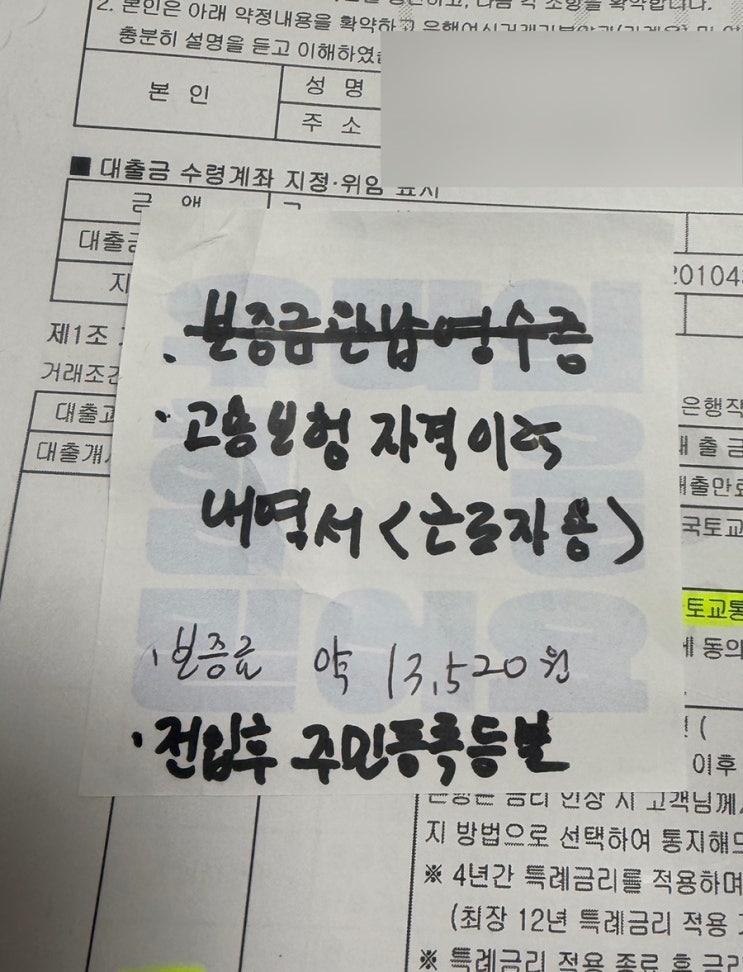 2. 본인은 아래 약정내용을 확약하고
충분히 설명을 듣고 이해하였
본 인
성 명
주 소
■ 대출금 수령계좌 지정·위임 표시
금 액
대출금
지
제1조
거래조건
대출과
대출개시
보증금완납영수증
· 고용보험 자격이력
내역서 (근로자용)
· 보증료 약 13,520원
· 전입후 주민등록등본
은행직
대출금
대출만료
국토교
토교통
에 동의
이후
은행은 금리 인상 시 고객님께
지 방법으로 선택하여 통지해드
※ 4년간 특례금리를 적용하며
(최장 12년 특례금리 적용
※ 특례금리 적용 종료 후 금리